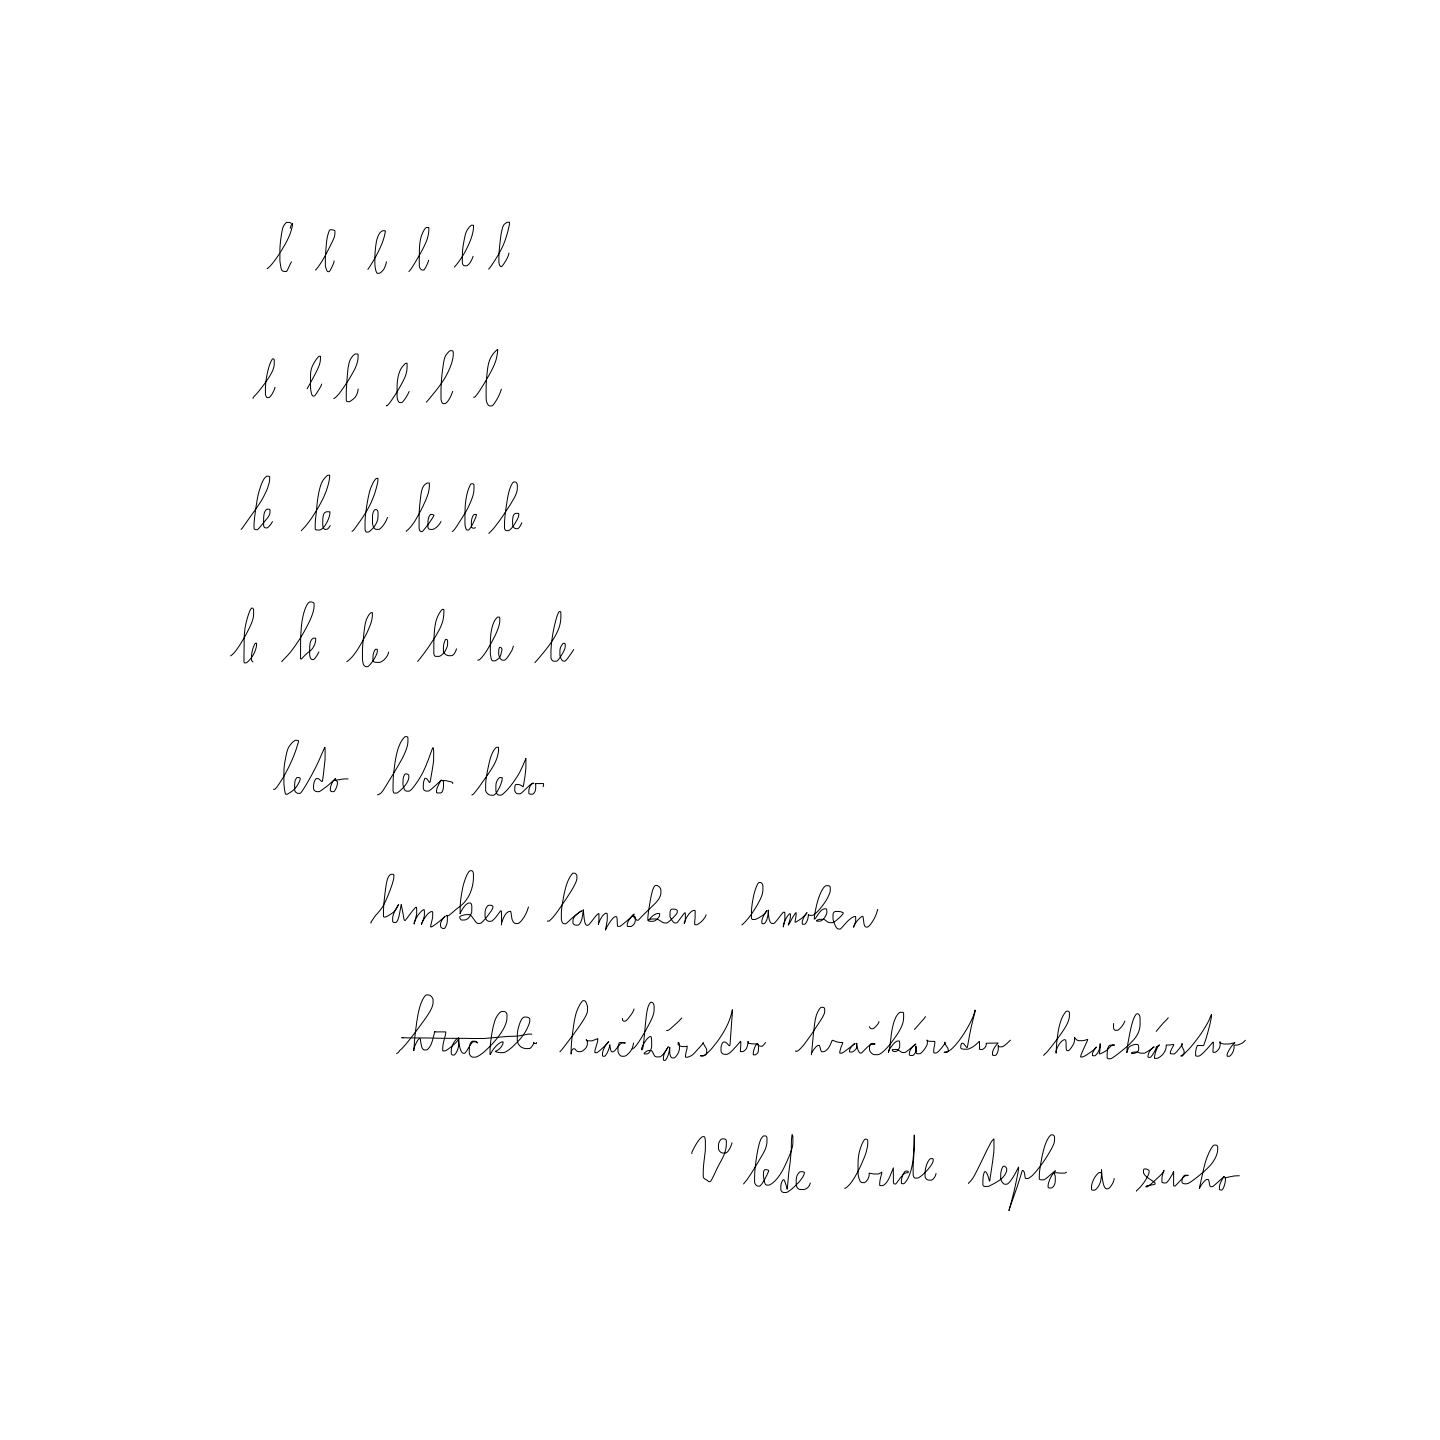 l l l l l l
l l l l l l
le le le le le le
le le le le le le
leto leto leto
lamoken lamoken lamoken
hračkárstvo hračkárstvo hračkárstvo
V lete bude teplo a sucho